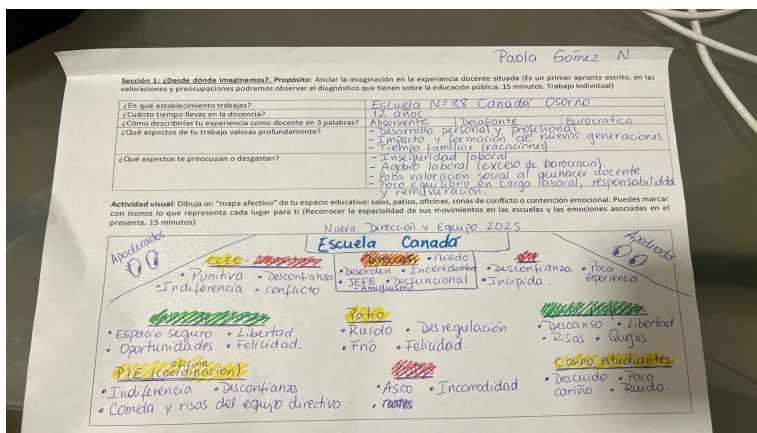 Paola Gómez N.
Sección 1: ¿Desde dónde imaginamos?. Propósito: Anclar la imaginación en la experiencia docente situada (Es un primer apronte escrito, en las
valoraciones y preocupaciones podremos observar el diagnóstico que tienen sobre la educación pública. 15 minutos. Trabajo Individual)
¿En qué establecimiento trabajas? Escuela N° 88 Canadá Osorno
¿Cuánto tiempo llevas en la docencia? 12 años
¿Cómo describirías tu experiencia como docente en 3 palabras? Absorvente Desafiante Burocratica
¿Qué aspectos de tu trabajo valoras profundamente? - Desarrollo personal y profesional
- Impacto y formación de nuevas generaciones
- Tiempo familiar (vacaciones).
¿Qué aspectos te preocupan o desgastan? - Inseguridad laboral
- Agobio laboral (exceso de burocracia).
- Poca valoración social al quehacer docente.
- Poco equilibrio en carga laboral, responsabilidad
y remuneración.
Actividad visual: Dibuja un "mapa afectivo" de tu espacio educativo: salas, patios, oficinas, zonas de conflicto o contención emocional. Puedes marcar
con íconos lo que representa cada lugar para ti (Reconocer la espacialidad de sus movimientos en las escuelas y las emociones asociadas en el
presente. 15 minutos)
Nueva Dirección y Equipo 2025
Escuela Canadá
Apoderados
Apoderados
CCEE -
• Punitiva • Desconfianza
• Indiferencia • conflicto
Dirección • ruedo
• Desorden • Incertidumbre
• JEFE • Disfuncional
• Amiguismo
• Desconfianza • Poca
• Incipida. experiencia
• Espacio seguro • Libertad
• Oportunidades • Felicidad.
Patio
• Ruido • Desregulación
• Frío • Felicidad.
• Descanso • Libertad
• Risas • Quejas.
PIE oficina (coordinación)
• Indiferencia • Desconfianza
• Comida y risas del equipo directivo.
• Asco • Incomodidad
Casino estudiantes
• Descuido • Poco
cariño • Ruido.